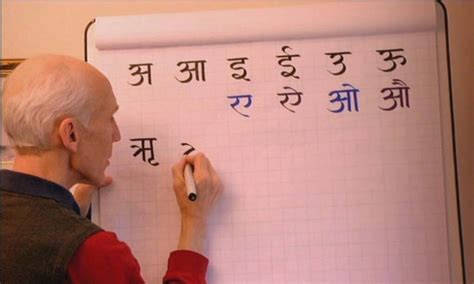 अ आ इ ई उ ऊ
ए ऐ ओ औ
ऋ